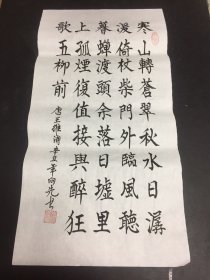 寒山轉蒼翠秋水日潺
湲倚杖柴門外臨風聽
暮蟬渡頭余落日墟里
上孤煙復值接輿醉狂
歌五柳前
唐王維詩辛丑年書